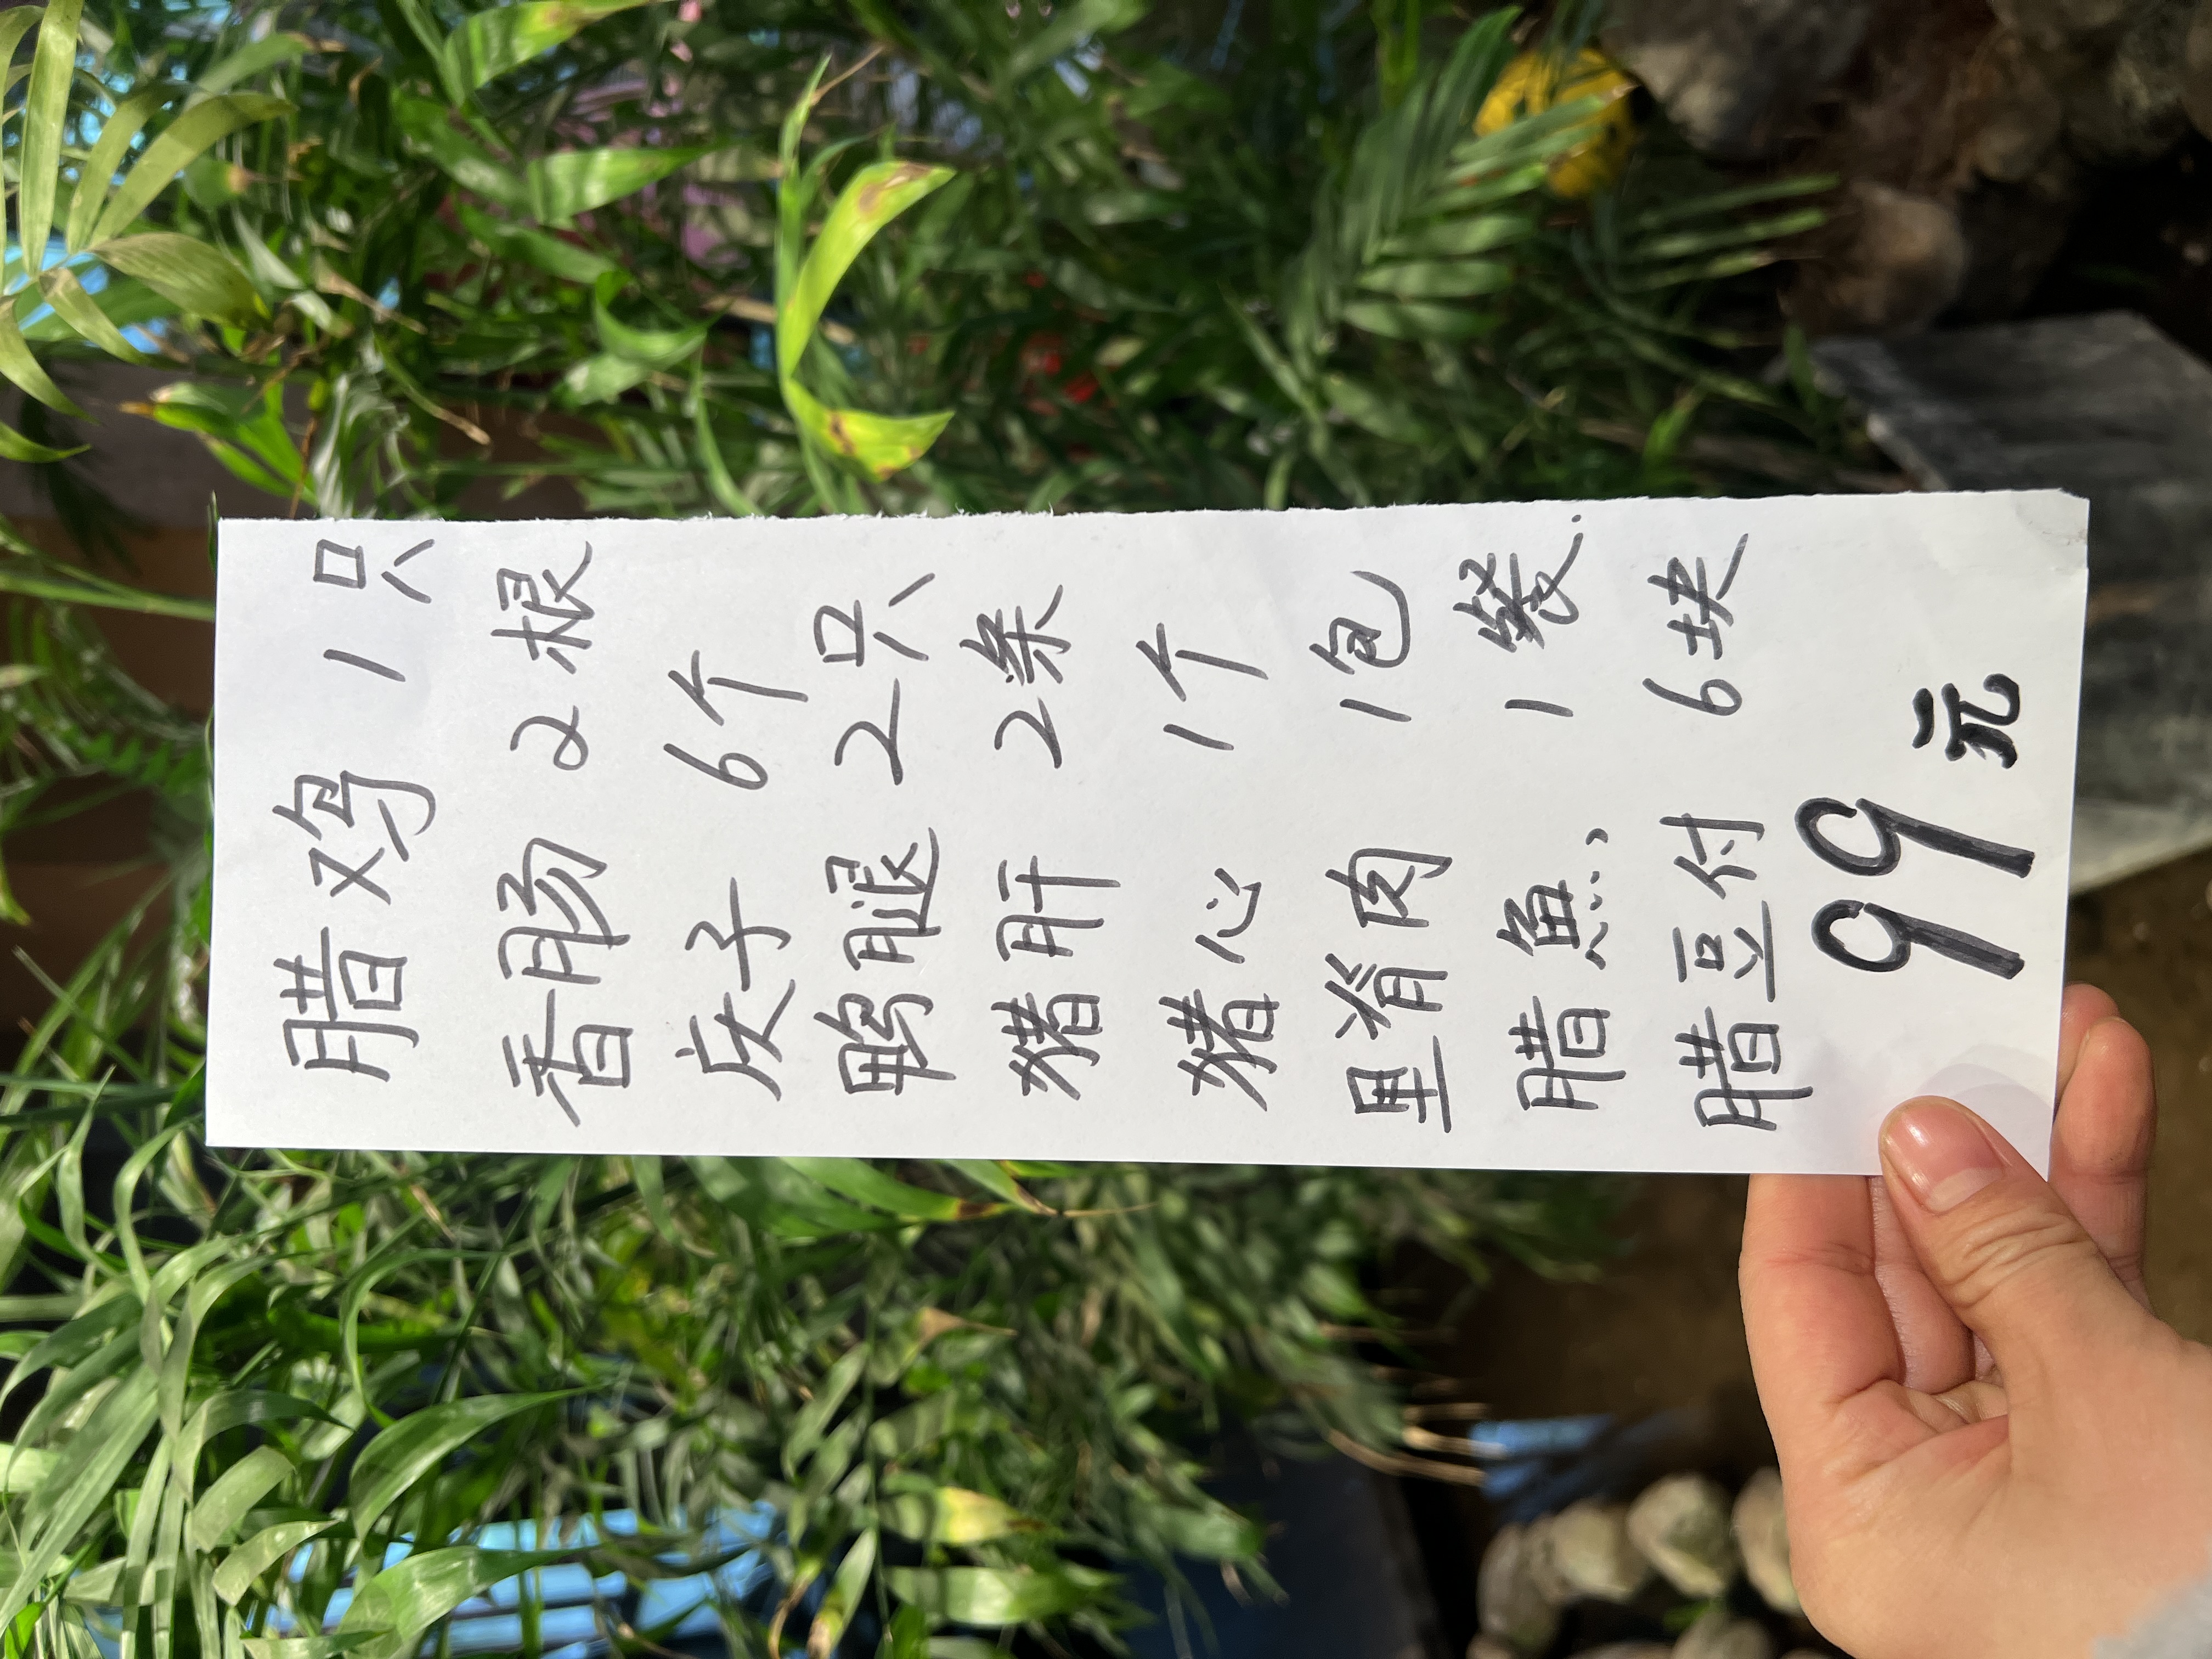 腊鸡 1只
香肠 2根
灰子 6个
鸭腿 2只
猪肝 2条
猪心 1个
里脊肉 1包
腊魚 1袋.
腊豆付 6块
99元